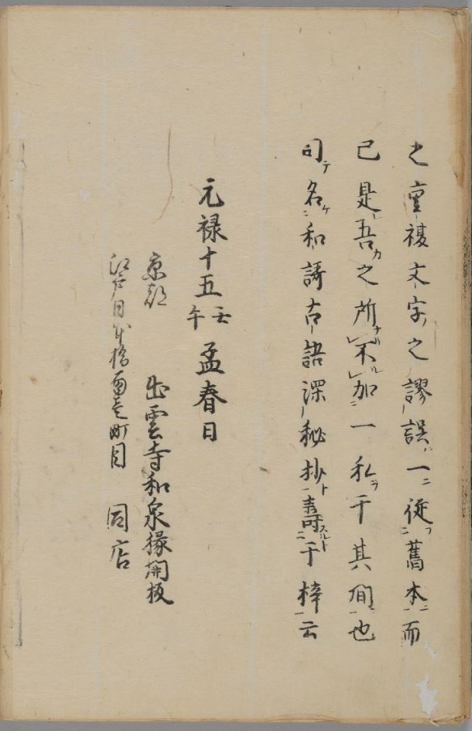 之重複文字之謬誤一従舊本而
已是吾之所不加一私于其間也
因名和謌古語深秘抄壽于梓云
元禄十五壬午孟春日
京都 出雲寺和泉掾開板
江戸日本橋南壱町目 同店